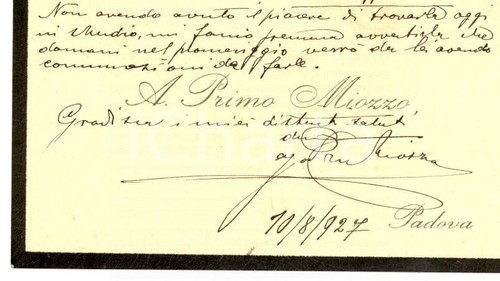 Non avendo avuto il piacere di trovarla oggi
in studio, mi faccio premura avvertirla che
domani nel pomeriggio verrò da lei avendo
comunicazioni da farle.
A. Primo Miozzo,
Gradisca i miei distinti saluti
Miozzo
10/8/927
Padova